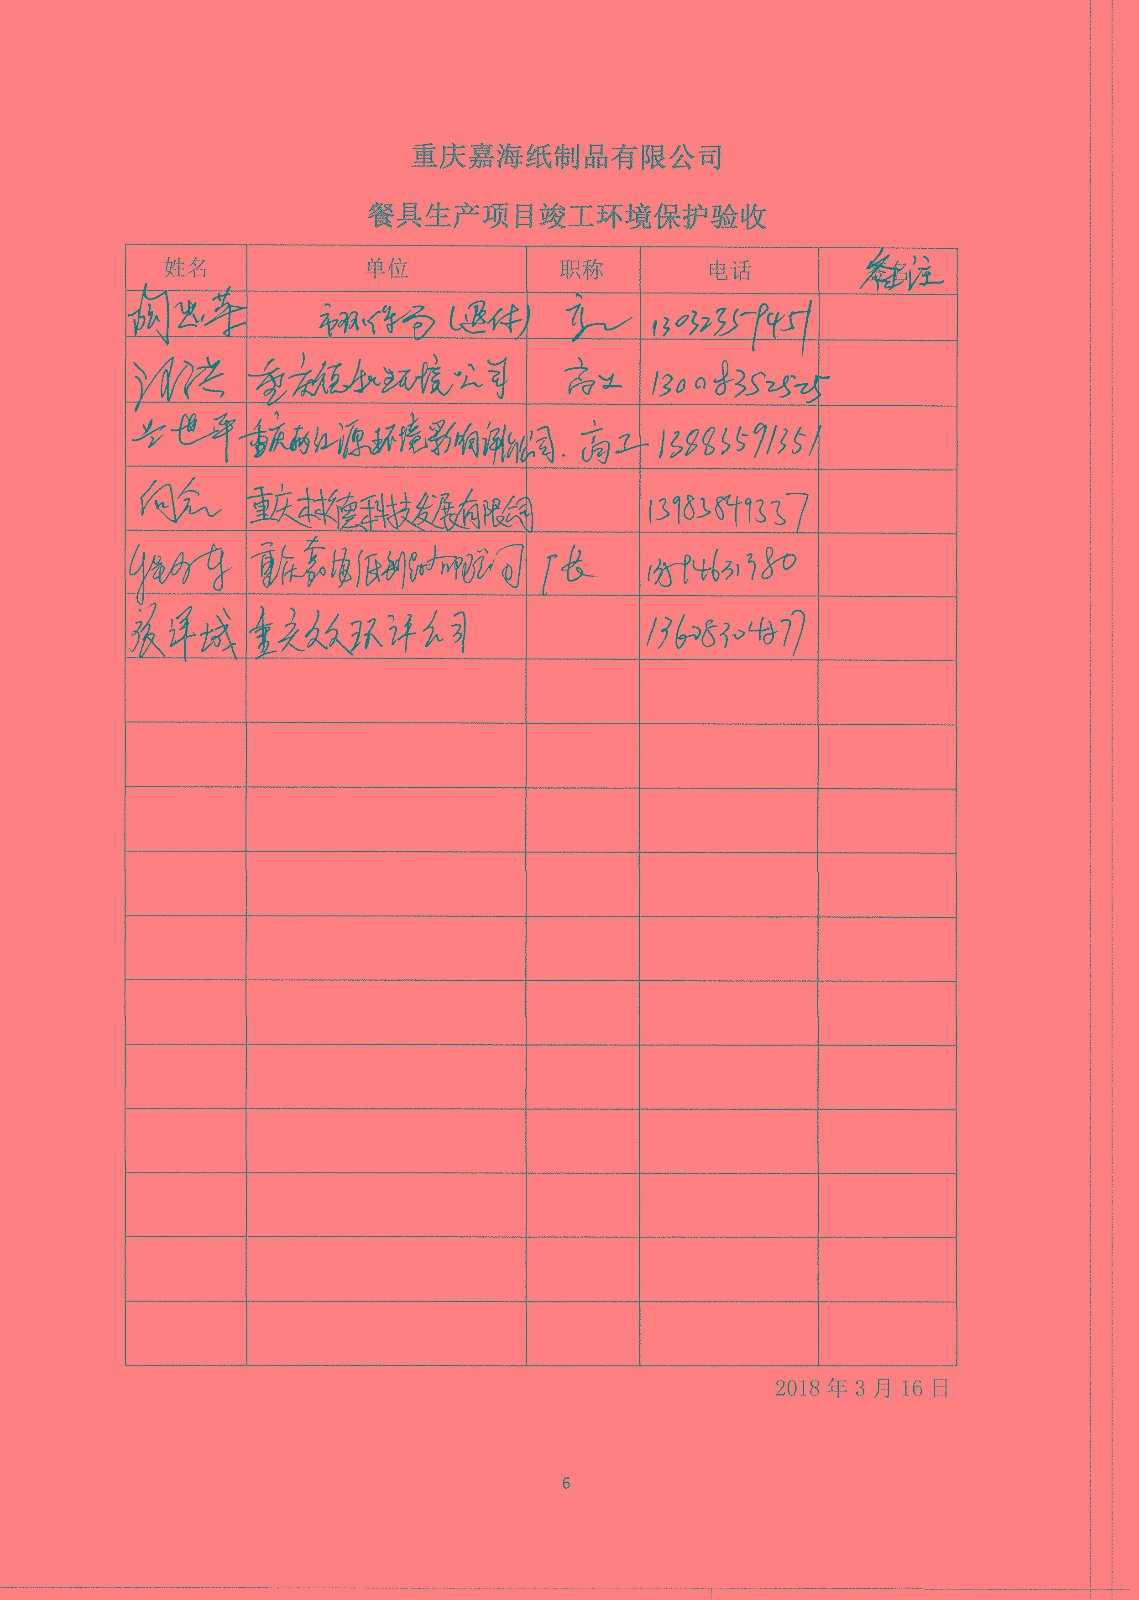 重庆嘉海纸制品有限公司
餐具生产项目竣工环境保护验收
姓名 单位 职称 电话 备注
市环保局(退休) 高工 13032359451
重庆 环境公司 高工 13008352525
兰世平 重庆两江源环境影响评价公司. 高工 13883591351
向念 重庆林德科技发展有限公司 13983849337
重庆嘉海纸制品有限公司 厂长
张泽城 重庆众众环评公司 13608304277
2018 年 3 月 16 日
6